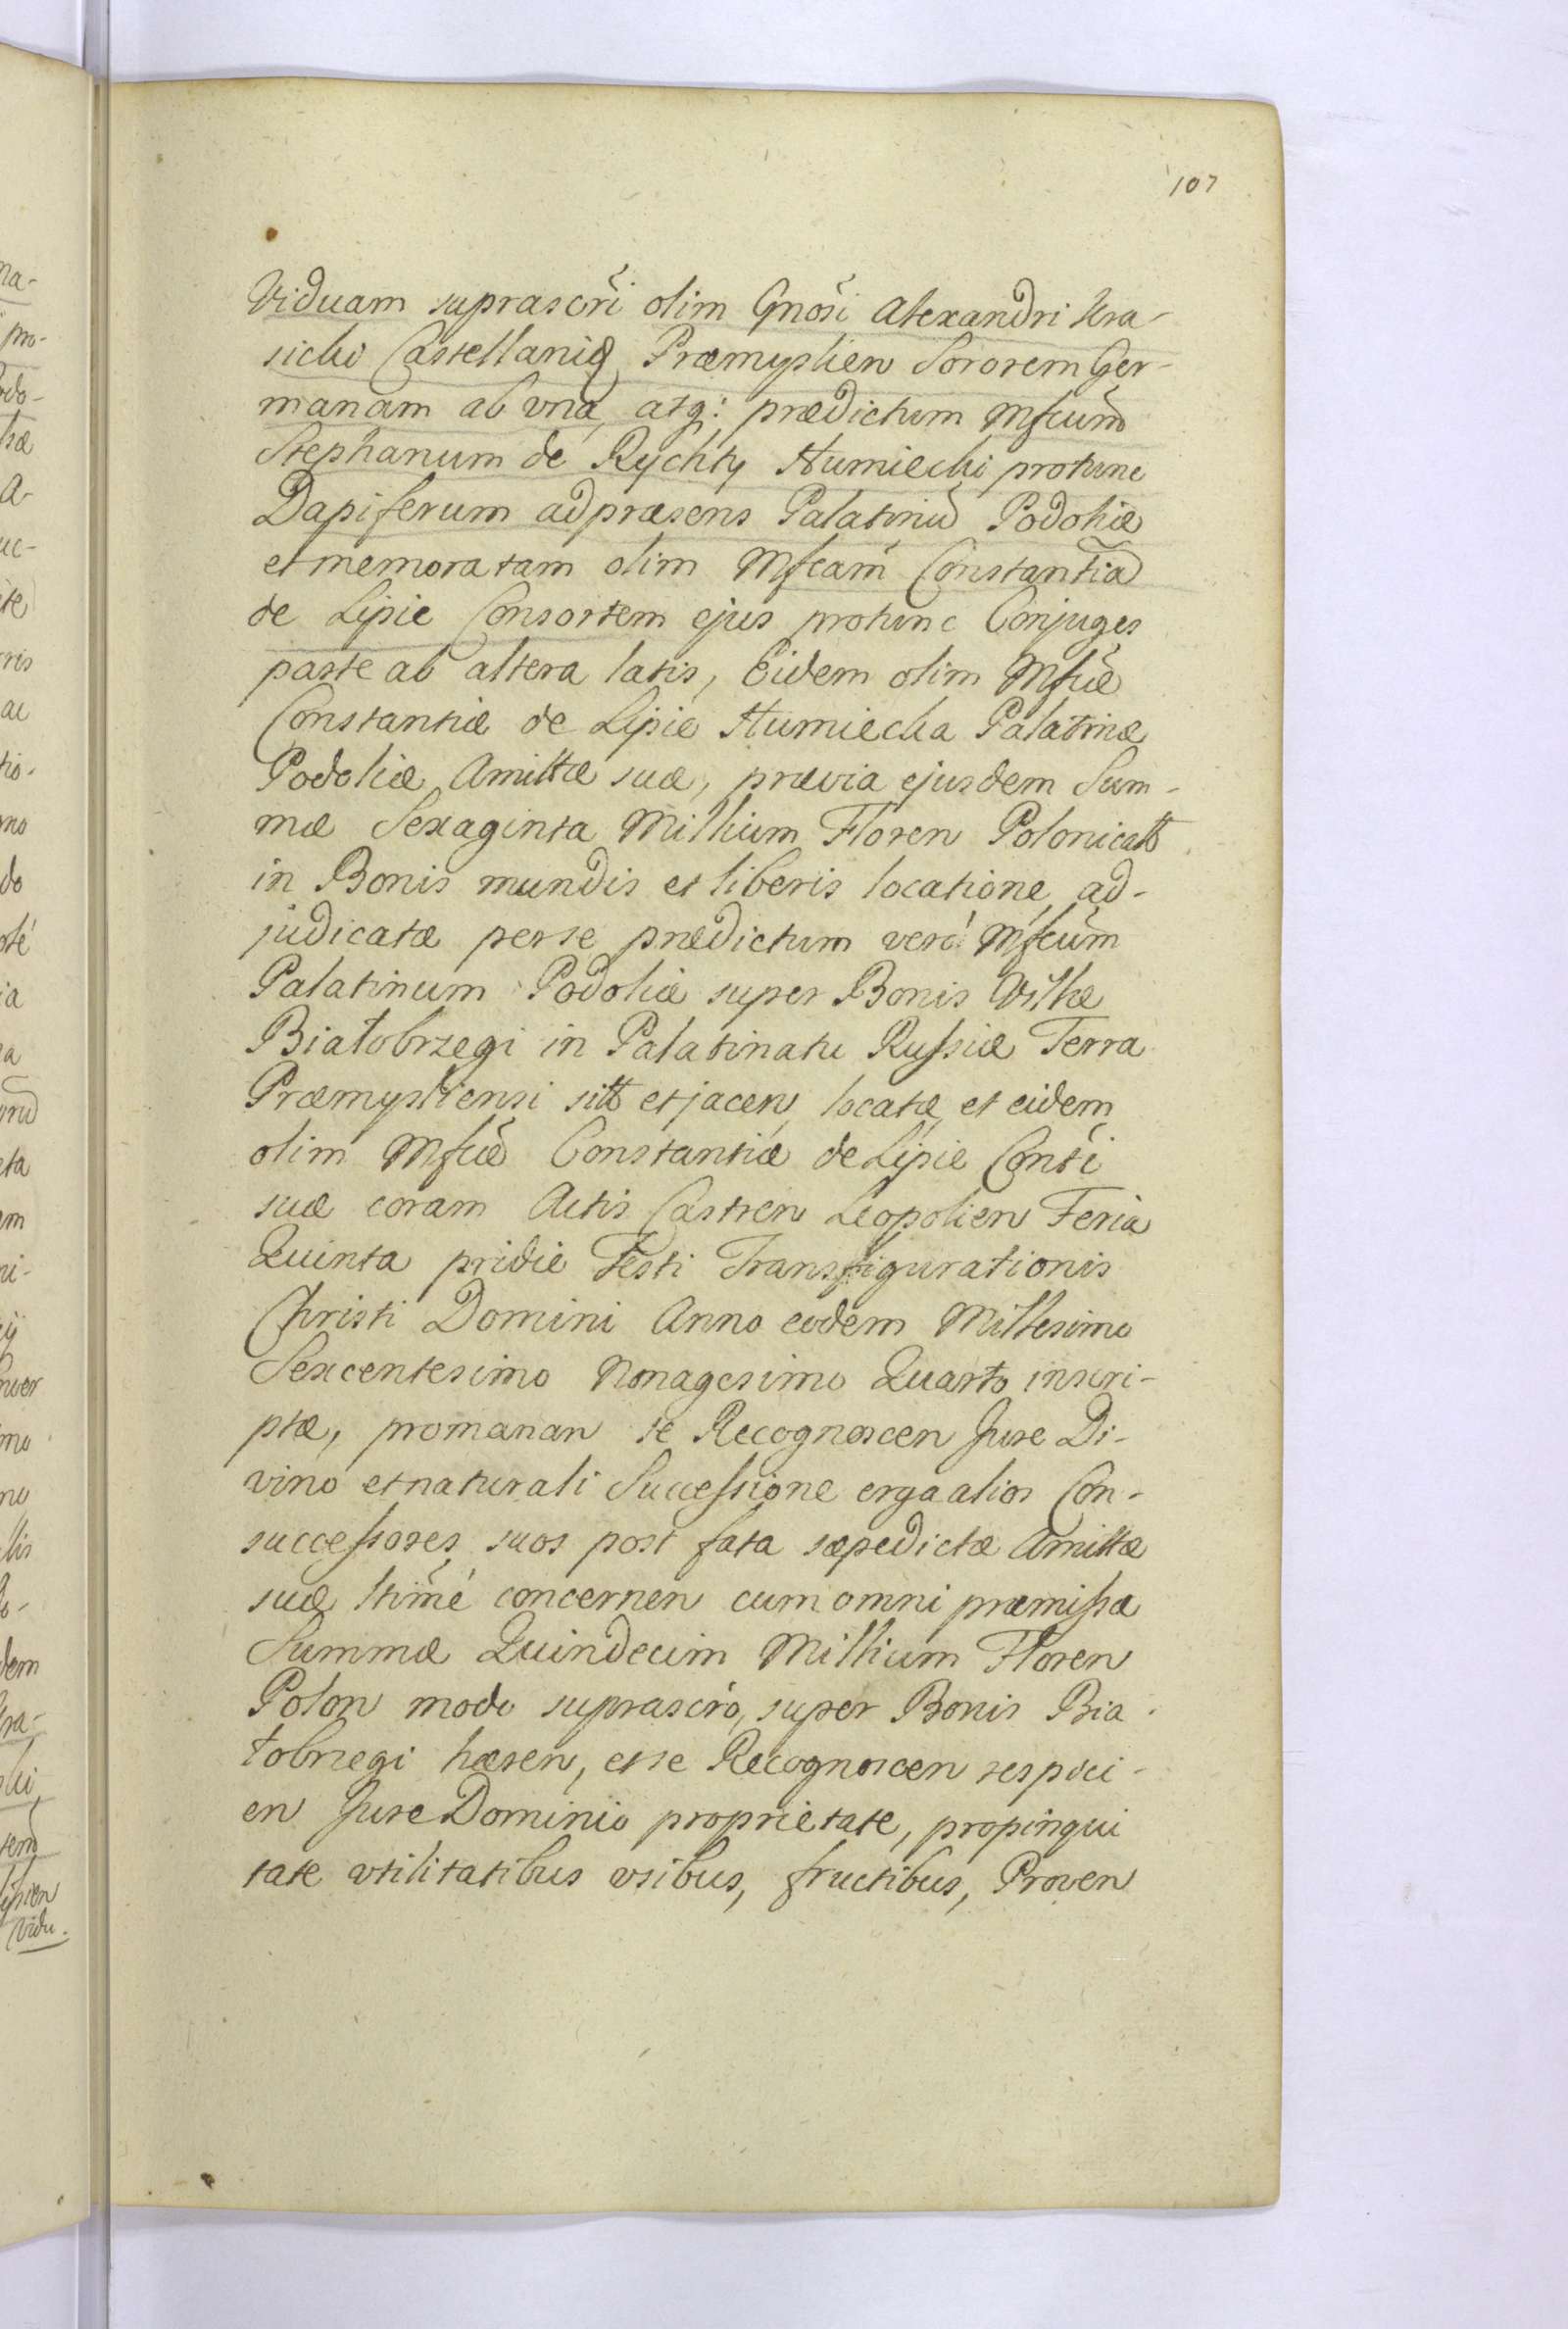 107
Viduam suprascr̃i olim Gnosi Alexandri Kra-
sicki Castellanid Præmyslien Sororem Ger-
manam ab vna, atq: prædictum Mfcum̃
Stephanum de Rychty Humiecki protunc
Dapiferum ad præsens Palatinũ Podoliæ
et memoratam olim Mfcam̃ Constantiã
de Lipie Consortem ejus protunc Conjuges
parte ab altera latis, Eidem olim Mfcæ̃
Constantiæ de Lipie Humiecka Palatinæ
Podoliæ Amittæ suæ, prævia ejusdem Sum-
mæ Sexaginta Millium Floren Polonicalt
in Bonis mundis et liberis locatione ad-
judicatæ per se prædictum veró Mfcum̃
Palatinum Podoliæ super Bonis Villæ
Białobrzegi in Palatinatu Russiæ Terra
Præmysliensi sitt et jacen, locatæ et eidem
olim Mfcæ̃ Constantiæ de Lipie Conti̇̃
suæ coram Actis Castren Leopolien Feria
Quinta pridie Festi Transfigurationis
Christi Domini Anno eodem Millesimo
Sexcentesimo Nonagesimo Quarto inscri-
ptæ, promanan se Recognoscen Jure Di-
vino et naturali Successione erga alios Con-
successores suos post fata sæpedictæ Amittæ
suæ ltimé concernen cum omni præmissa
Summæ Quindecim Millium Floren
Polon modo suprascr̃o, super Bonis Bia-
łobrzegi hæren, et se Recognoscen respici-
en Jure Dominio proprietate, propinqui
tate vtilitatibus vsibus, fructibus, Proven